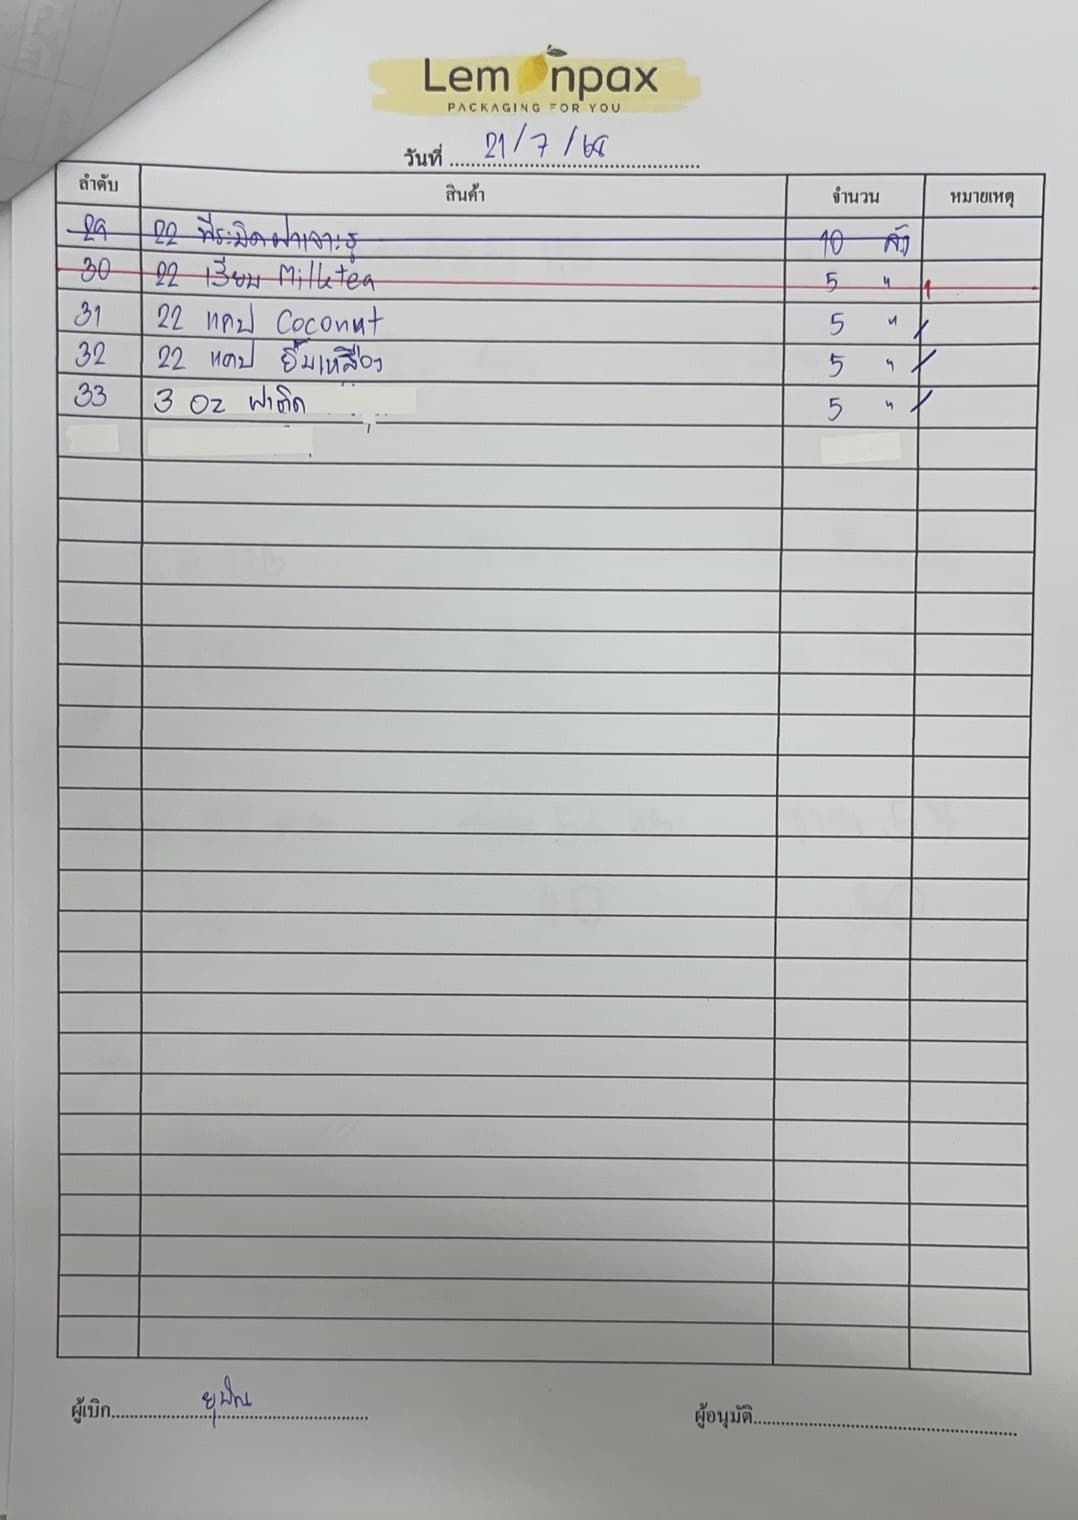 Lemonpax
PACKAGING FOR YOU
วันที่ 21/7/68
ลำดับ สินค้า จำนวน หมายเหตุ
29 22 พีระมิดฝาเจาะรู 10 ลัง
30 22 เรียบ Milktea 5 "
31 22 แคป Coconut 5 " /
32 22 แคป ยิ้มเหลือง 5 " /
33 3 Oz ฝาติด 5 " /
ผู้เบิก ผู้อนุมัติ